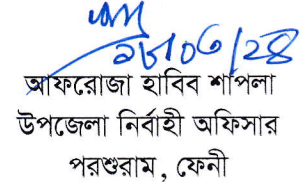 ২৮/০৩/২৪
আফরোজা হাবিব শাপলা
উপজেলা নির্বাহী অফিসার
পরশুরাম, ফেনী